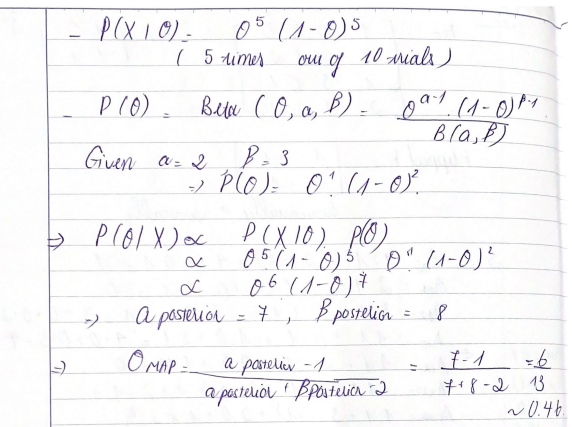 - P(X | θ) = θ⁵ (1-θ)⁵
( 5 times our of 10 trials )
- P(θ) = Beta ( θ, a, β) = θᵃ⁻¹. (1-θ)ᵝ⁻¹ / B(a, β)
Given a = 2 β = 3
=> P(θ) = θ¹. (1-θ)².
=> P(θ | X) ∝ P(X | θ). P(θ)
∝ θ⁵ (1-θ)⁵ θ¹ (1-θ)²
∝ θ⁶ (1-θ)⁷
=> a posterior = 7 , β posterior = 8
=> θ MAP = a posterior - 1 / a posterior + β posterior - 2 = 7-1 / 7+8-2 = 6 / 13
~ 0.46.